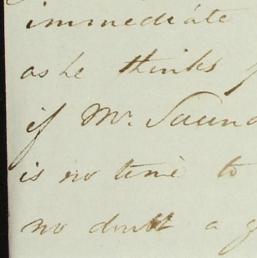 immediate
as he thinks
if Mr. Saund
is no time to
no doubt a